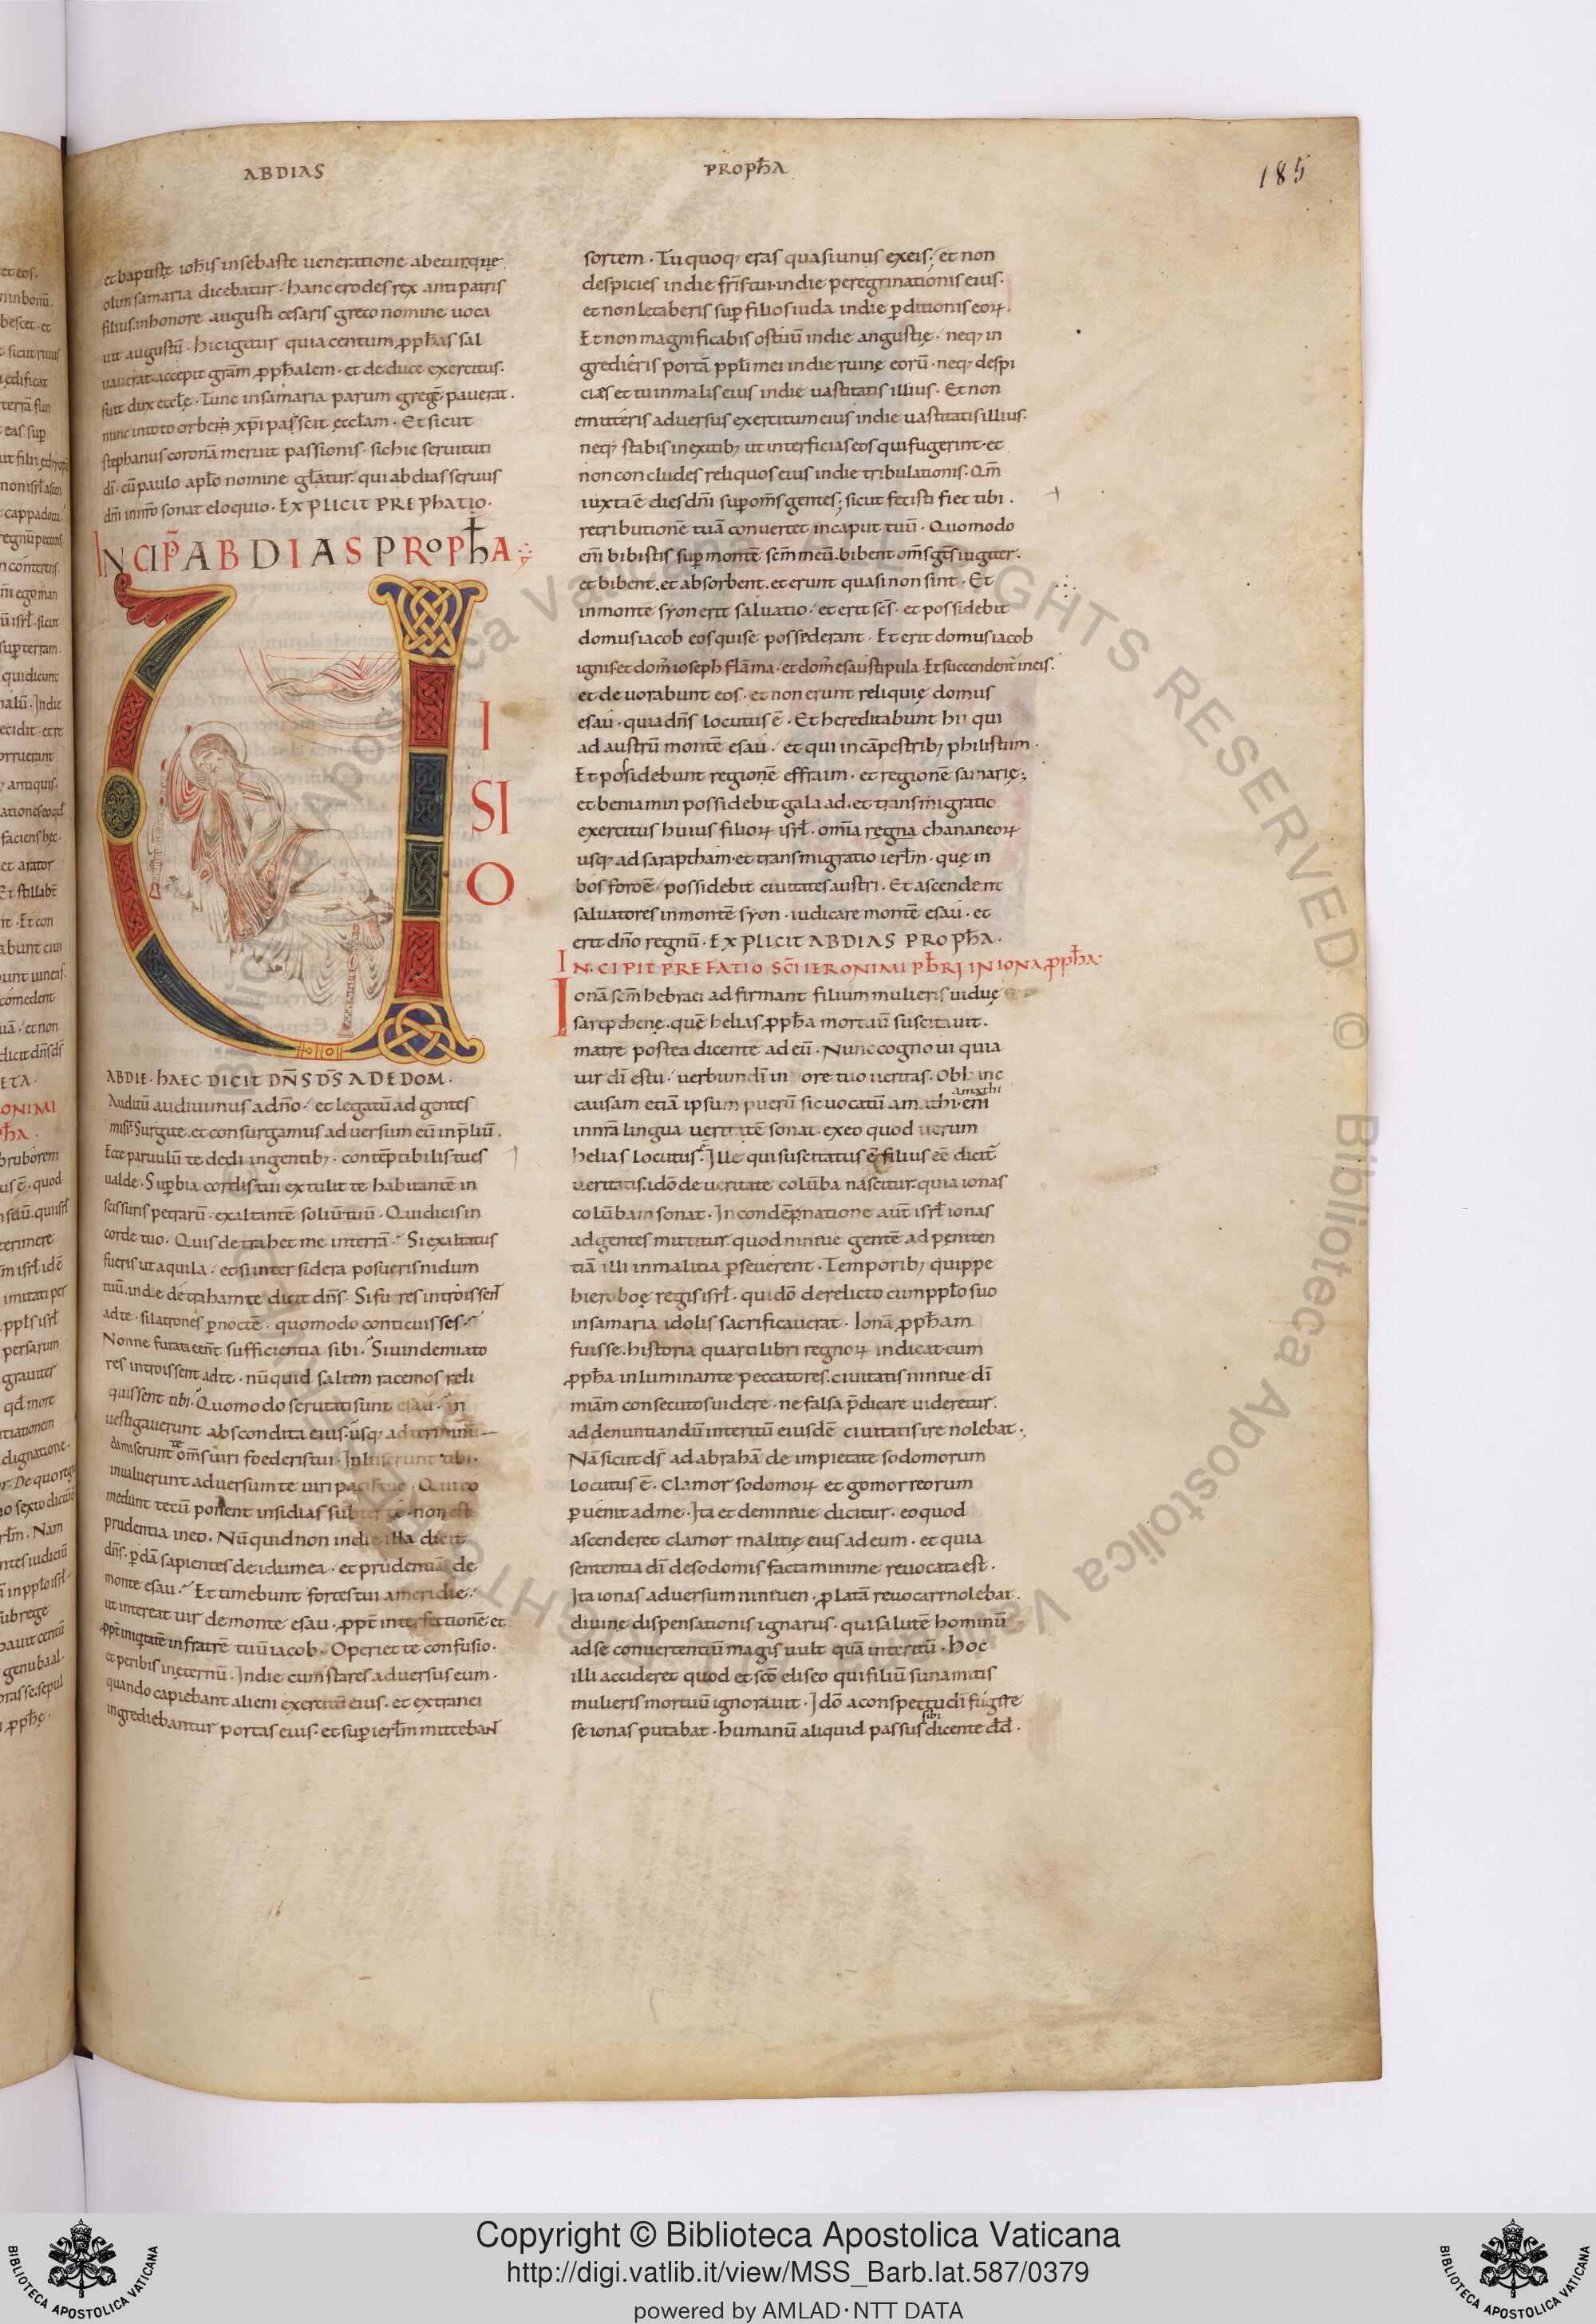 ABDIAS
PROPH̄A
185
et baptistę ioh̄is insebaste ueneratione abeturquę
olim samaria dicebatur · hanc erodes rex antipatris
filius inhonore augusti cesaris greco nomine uoca
uit augustū · hic igitur quia centum ꝓph̄as sal
uauerat accepit grām ꝓph̄alem · et de duce exercitus ·
fuit dux eccłę · Tunc insamaria parum gregē pauerat ·
nunc intoto orbem xp̄i passcit ęcclam · Et sicut
stephanus coronā meruit passionis · sic hic seruituti
dī · cū paulo apło nomine glatur · qui abdias seruus
dnī innrō sonat eloquio · EXPLICIT PREPHATIO ·
INCIP̄ ABDIAS PROPH̄A
U
I
SI
O
ABDIE · HAEC DICIT DN̄S D̄S ADEDOM ·
Auditū audiuimus adnō · et legatū ad gentes
misit Surgite · et consurgamus aduersum eū inp̄liū ·
Ecce paruulū te dedi ingentibꝫ · contēptibilis tu es
ualde · Supbia cordis tui extulit te habitantē in
scissuris petrarū · exaltantē soliū tuū · Qui dicis in
corde tuo · Quis detrahet me interrā · Si exaltatus
fueris ut aquila · et si inter sidera posueris nidum
tuū · inde detraham te dicit dn̄s · Si fures introissent
adte · si latrones p noctē · quomodo conticuisses ·
Nonne furati essent sufficientia sibi · Si uindemiato
res introissent adte · nūquid saltim racemos reli
quissent tibi · Quomodo scrutati sunt esau · in
uestigauerunt abscondita eius · usqꝫ adterminū
dimiserunt te om̄s uiri foederis tui · Inluserunt tibi ·
inualuerunt aduersum te uiri pacis tuę · Qui co
medunt tecū ponent insidias subter te · non est
prudentia ineo · Nūquid non indie illa dicit
dn̄s · pdā sapientes de idumea · et prudentiā de
monte esau · Et timebunt fortes tui ameridie ·
ut intereat uir demonte esau · ꝓpt̄ interfectionē et
ꝓpt̄ iniqtatē in fratrē tuū iacob · Operiet te confusio ·
et peribis ineternū · Indie cum stares aduersus eum ·
quando capiebant alieni exercitū eius · et extranei
ingrediebantur portas eius · et sup ierłm mittebant
sortem · Tu quoqꝫ eras quasi unus exeis · et non
despicies indie frīs tui · indie peregrinationis eius ·
et non letaberis sup filios iuda indie pditionis eorꝝ ·
Et non magnificabis os tuū indie angustię · neqꝫ in
gredieris portā pplī mei indie ruinę eorū · neqꝫ despi
cies et tu inmalis eius indie uastitatis illius · Et non
emitteris aduersus exercitum eius indie uastitatis illius ·
neqꝫ stabis inexitibꝫ ut interficias eos qui fugerint · et
non concludes reliquos eius indie tribulationis · Qm̄
iuxta ē dies dnī sup om̄s gentes · sicut fecisti fiet tibi ·
retributionē tuā conuertet incaput tuū · Quomodo
enī bibistis sup montē scm̄ meū · bibent om̄s gt̄s iugiter ·
et bibent · et absorbent · et erunt quasi non sint · Et
inmonte syon erit saluatio · et erit scs̄ · et possidebit
domus iacob eos qui se possederant · Et erit domus iacob
ignis et dom' ioseph flāma · et dom' esau stipula · Et succendent̄ ineis ·
et deuorabunt eos · et non erunt reliquię domus
esau · quia dn̄s locutus ē · Et hereditabunt hii qui
ad austrū montē esau · et qui incāpestribꝫ philistim ·
Et possidebunt regionē effraim · et regionē samarię ·
et beniamin possidebit galaad · et transmigratio
exercitus huius filiorꝝ isrł · omīa regna chananeorꝝ
usqꝫ ad saraptham · et transmigratio ierłm · quę in
bosforo ē possidebit ciuitates austri · Et ascendent
saluatores inmontē syon · iudicare montē esau · et
erit dnō regnū · EXPLICIT ABDIAS PROPH̄A ·
INCIPIT PREFATIO SC̄I IERONIMI PB̄RI IN IONA ꝓPH̄A ·
Ionā scm̄ hebraei adfirmant filium mulieris uiduę
sarepthenę · quē helias ꝓph̄a mortuū suscitauit ·
matre postea dicente ad eū · Nunc cognoui quia
uir dī es tu · uerbum dī in ore tuo ueritas · Ob hanc
causam etiā ipsum puerū sic uocatū amathi · enī
amathi
innrā lingua ueritatē sonat · exeo quod uerum
helias locutus ē · Ille qui suscitatus ē filius eē dicit̄
ueritatis · idō de ueritate colūba nascitur · quia ionas
colūbam sonat · Incondēpnatione aut̄ isrł ionas
ad gentes mittitur · quod niniue gentē ad pęniten
tiā illi inmalitia pseuerent · Temporibꝫ quippe
hieroboę regis isrł · qui dō derelicto cum ppło suo
insamaria idolis sacrificauerat · Ionā ꝓph̄am
fuisse · historia quarti libri regnorꝝ indicat · cum
ꝓph̄a inluminante peccatores · ciuitatis niniue dī
miām consecutos uidere · ne falsa p̄dicare uideretur ·
ad denuntiandū interitū eiusdē ciuitatis ire nolebat ·
Nā sicut ds̄ ad abrahā de impietate sodomorum
locutus ē · Clamor sodomorꝝ et gomorreorum
puenit adme · Ita et deniniue dicitur · eo quod
ascenderet clamor malitię eius ad eum · et quia
sententia dī desodomis facta minime reuocata est ·
Ita ionas aduersum niniuen · platā reuocari nolebat ·
diuinę dispensationis ignarus · qui salutē hominū
ad se conuertentiū magis uult quā interitū · Hoc
illi accideret quod et scō eliseo qui filiū sunamitis
mulieris mortuū ignorauit · Idō aconspectu dī fugire
se ionas putabat · humanū aliquid passus sibi dicente dd̄ ·
Copyright © Biblioteca Apostolica Vaticana
http://digi.vatlib.it/view/MSS_Barb.lat.587/0379
powered by AMLAD · NTT DATA
BIBLIOTECA APOSTOLICA VATICANA
BIBLIOTECA APOSTOLICA VATICANA